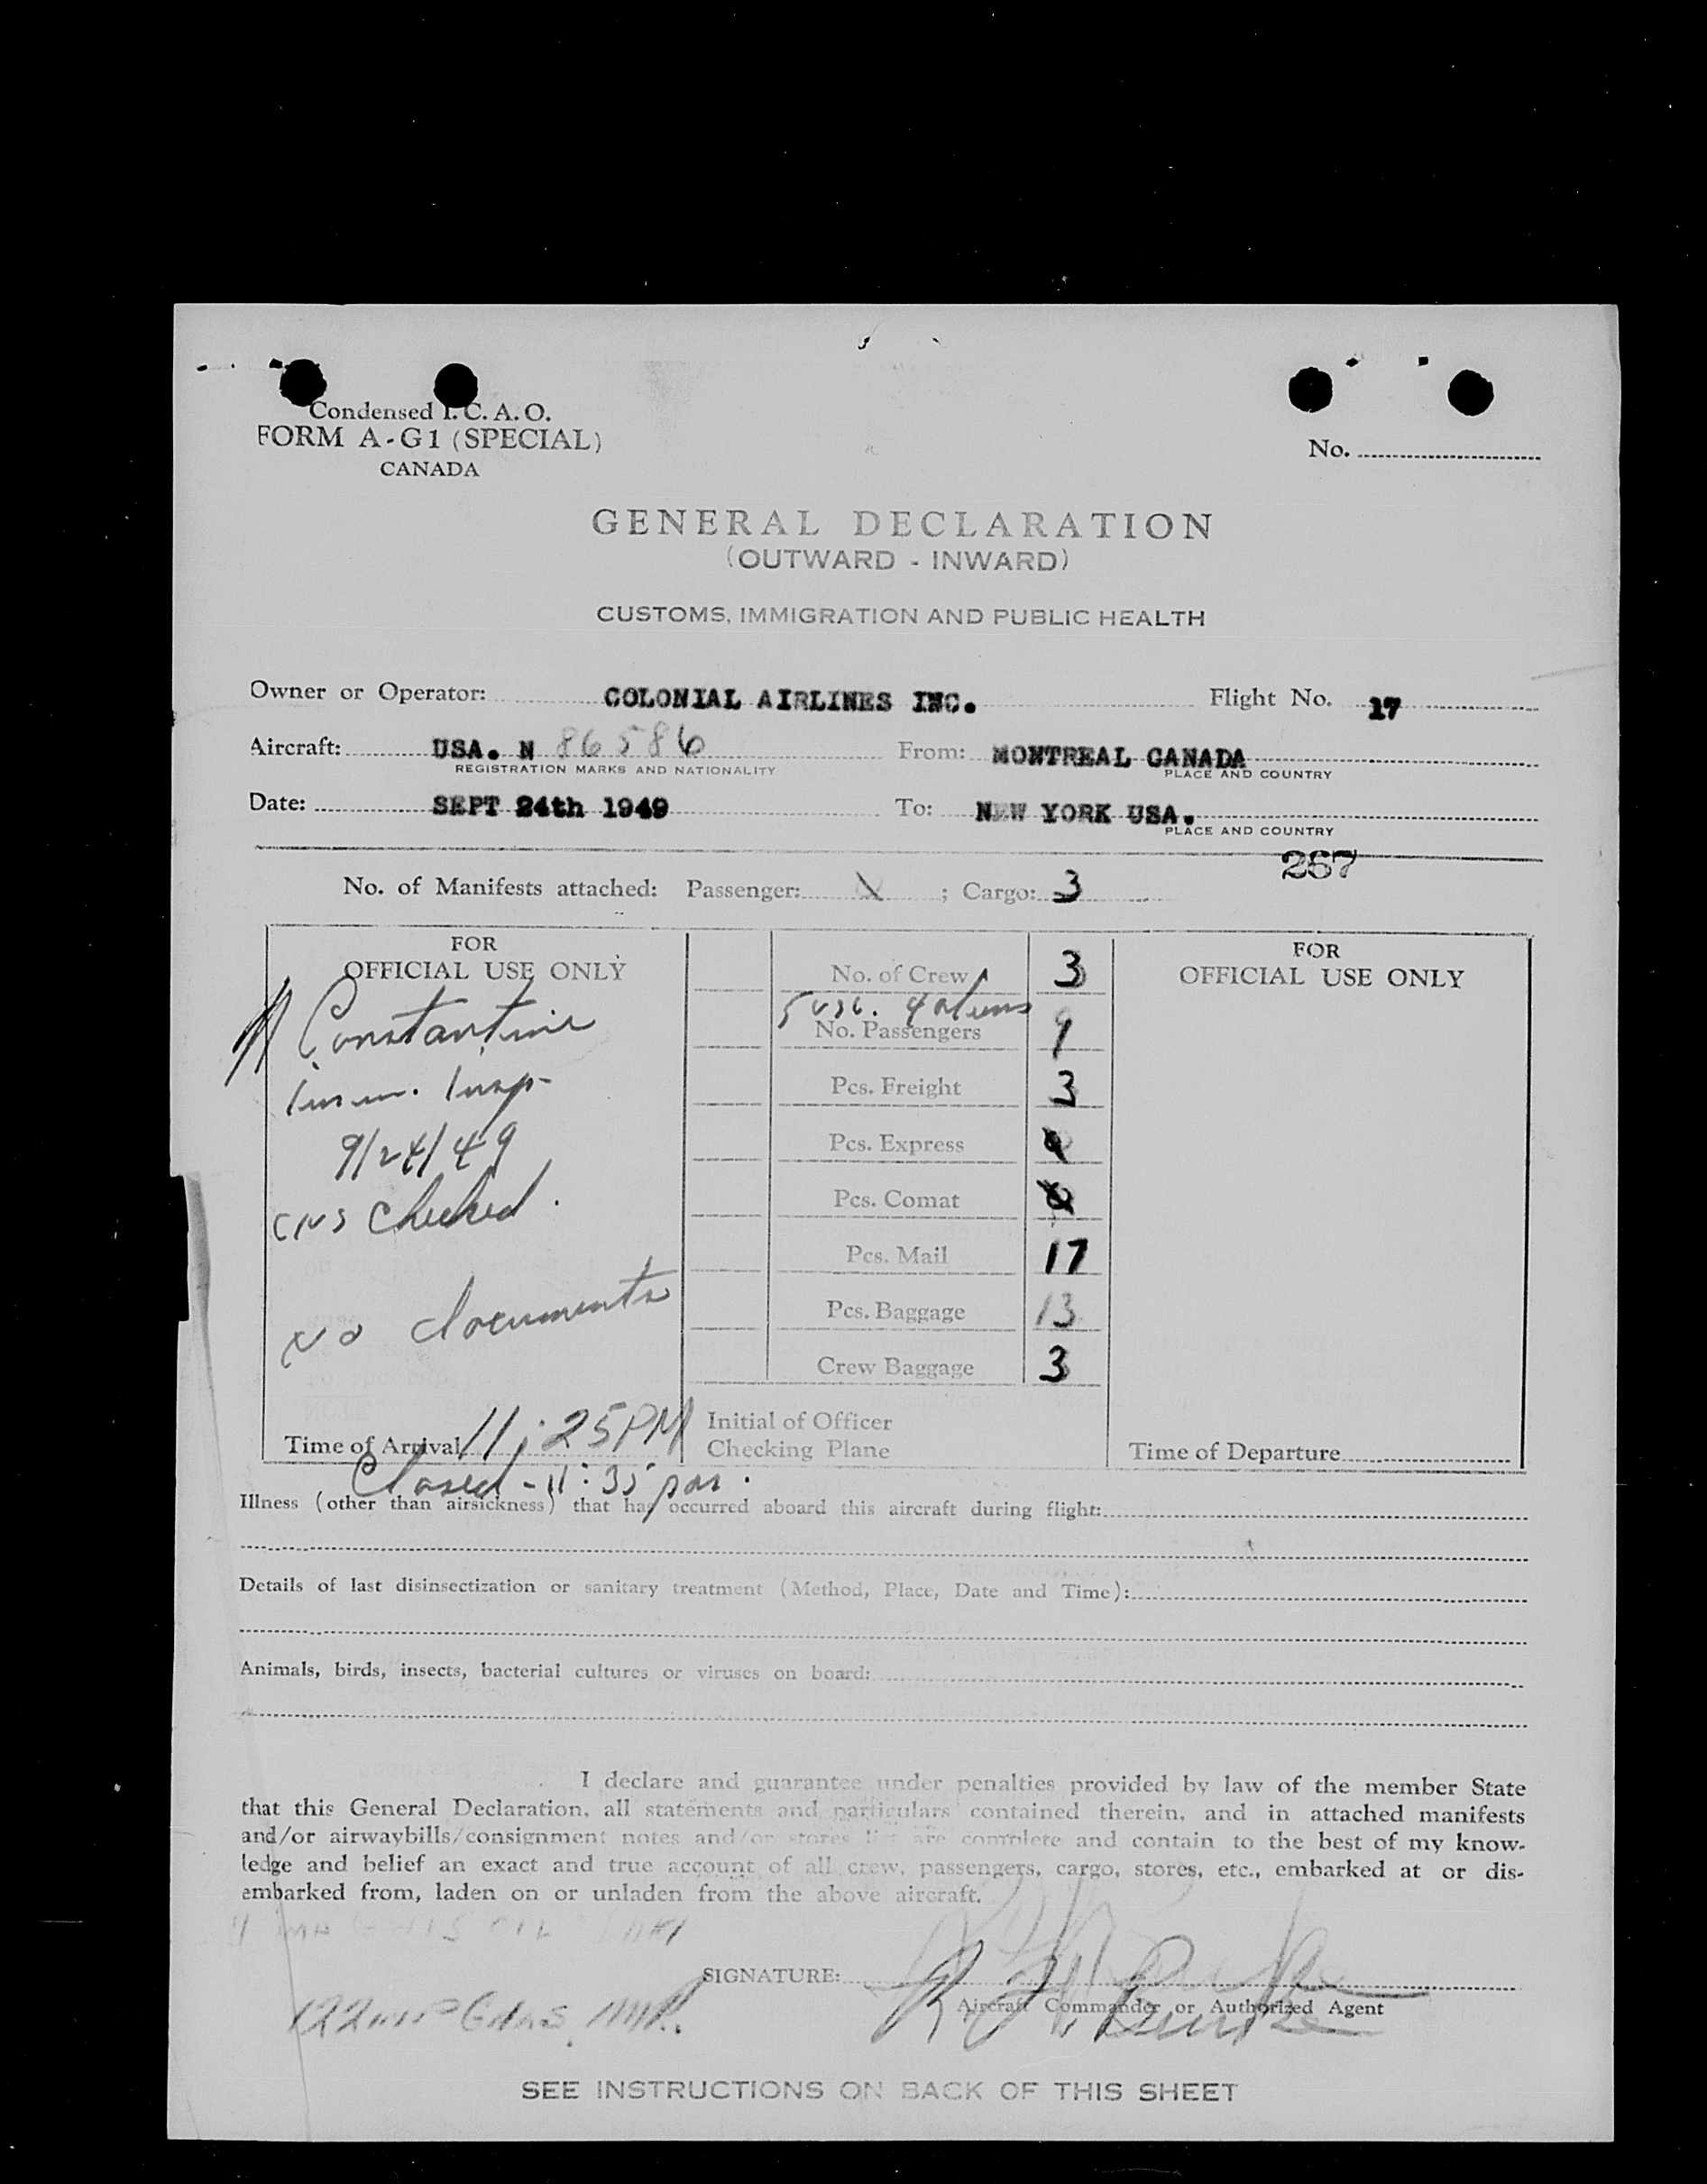 Condensed I. C. A. O.
FORM A-G1 (SPECIAL)
CANADA
No.
GENERAL DECLARATION
(OUTWARD - INWARD)
CUSTOMS, IMMIGRATION AND PUBLIC HEALTH
Owner or Operator: COLONIAL AIRLINES INC. Flight No. 17
Aircraft: USA. N 86586 From: MONTREAL CANADA
REGISTRATION MARKS AND NATIONALITY PLACE AND COUNTRY
Date: SEPT 24th 1949 To: NEW YORK USA.
PLACE AND COUNTRY
267
No. of Manifests attached: Passenger: ; Cargo: 3
FOR
OFFICIAL USE ONLY
Constantine
Imm. Insp
9/24/49
checked.
No documents
Time of Arrival 11:25PM
Closed - 11:35 pm.
No. of Crew 3
5 usc. 4 aliens
No. Passengers 9
Pcs. Freight 3
Pcs. Express
Pcs. Comat
Pcs. Mail 17
Pcs. Baggage 13
Crew Baggage 3
Initial of Officer
Checking Plane
FOR
OFFICIAL USE ONLY
Time of Departure
Illness (other than airsickness) that has occurred aboard this aircraft during flight:
Details of last disinsectization or sanitary treatment (Method, Place, Date and Time):
Animals, birds, insects, bacterial cultures or viruses on board:
I declare and guarantee under penalties provided by law of the member State
that this General Declaration, all statements and particulars contained therein, and in attached manifests
and/or airwaybills/consignment notes and/or stores list are complete and contain to the best of my know-
ledge and belief an exact and true account of all crew, passengers, cargo, stores, etc., embarked at or dis-
embarked from, laden on or unladen from the above aircraft.
SIGNATURE:
Aircraft Commander or Authorized Agent
SEE INSTRUCTIONS ON BACK OF THIS SHEET